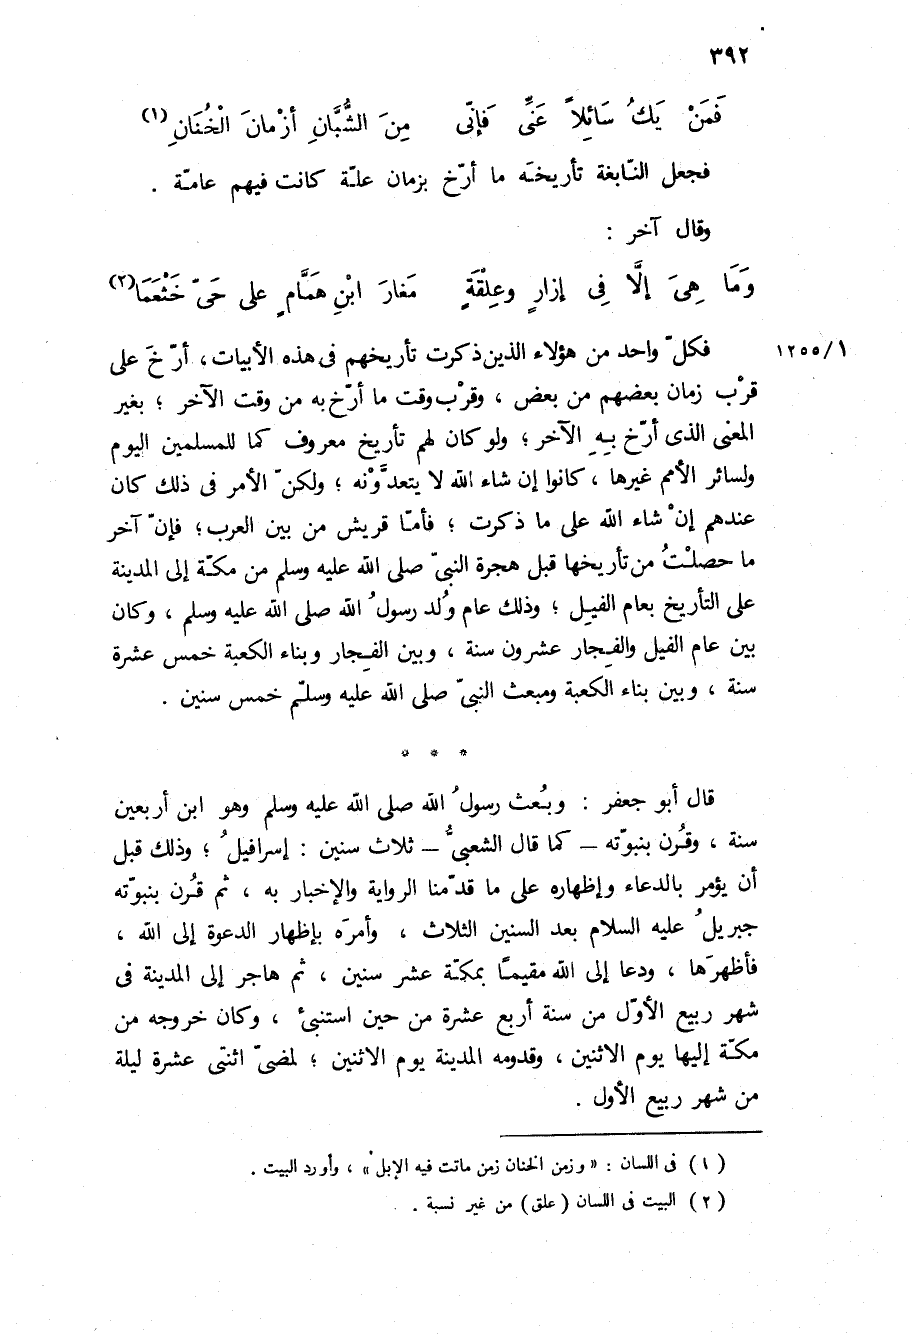 ٣٩٢
فَمَنْ يَكُ سَائِلاً عَنِّى فَإِنِّى مِنَ الشُّبَّانِ أَزْمانَ الْخُنَانِ (١)
فجعل النّابغة تأريخَه ما أرّخ بزمان علّة كانت فيهم عامّة .
وقال آخر :
وَمَا هِىَ إلَّا فِى إزارٍ وعِلْقَةٍ مَغارَ ابْنِ هَمَّامٍ على حَىّ خَثْعَمَا (٢)
فكلّ واحد من هؤلاء الذين ذكرت تأريخهم فى هذه الأبيات ، أرّخَ على ١٢٥٥/١
قرْب زمان بعضهم من بعض ، وقرْب وقت ما أرّخ به من وقت الآخر ؛ بغير
المعنى الذى أرّخ بهِ الآخر ؛ ولو كان لهم تأريخ معروف كما للمسلمين اليوم
ولسائر الأمم غيرها ، كانوا إن شاء الله لا يتعدَّوْنه ؛ ولكنّ الأمر فى ذلك كان
عندهم إنْ شاء الله على ما ذكرت ؛ فأمّا قريش من بين العرب ؛ فإنّ آخر
ما حصلْتُ من تأريخها قبل هجرة النبىّ صلى الله عليه وسلم من مكّة إلى المدينة
على التأريخ بعام الفيل ؛ وذلك عام وُلد رسولُ الله صلى الله عليه وسلم ، وكان
بين عام الفيل والفِجار عشرون سنة ، وبين الفِجار وبناء الكعبة خمس عشرة
سنة ، وبين بناء الكعبة ومبعث النبىّ صلى الله عليه وسلّم خمس سنين .
* * *
قال أبو جعفر : وبُعث رسولُ الله صلى الله عليه وسلم وهو ابن أربعين
سنة ، وقُرن بنبوّته – كما قال الشعبىُّ – ثلاث سنين : إسرافيلُ ؛ وذلك قبل
أن يؤمر بالدعاء وإظهاره على ما قدّمنا الرواية والإخبار به ، ثم قُرن بنبوّته
جبريلُ عليه السلام بعد السنين الثلاث ، وأمرَه بإظهار الدعوة إلى الله ،
فأظهرَها ، ودعا إلى الله مقيمًا بمكّة عشر سنين ، ثم هاجر إلى المدينة فى
شهر ربيع الأوّل من سنة أربع عشرة من حين استنبئ ، وكان خروجه من
مكّة إليها يوم الاثنين ، وقدومه المدينة يوم الاثنين ؛ لمضىّ اثنتى عشرة ليلة
من شهر ربيع الأول .
(١) فى اللسان : « وزمن الخنان زمن ماتت فيه الإبل » ، وأورد البيت .
(٢) البيت فى اللسان (علق) من غير نسبة .